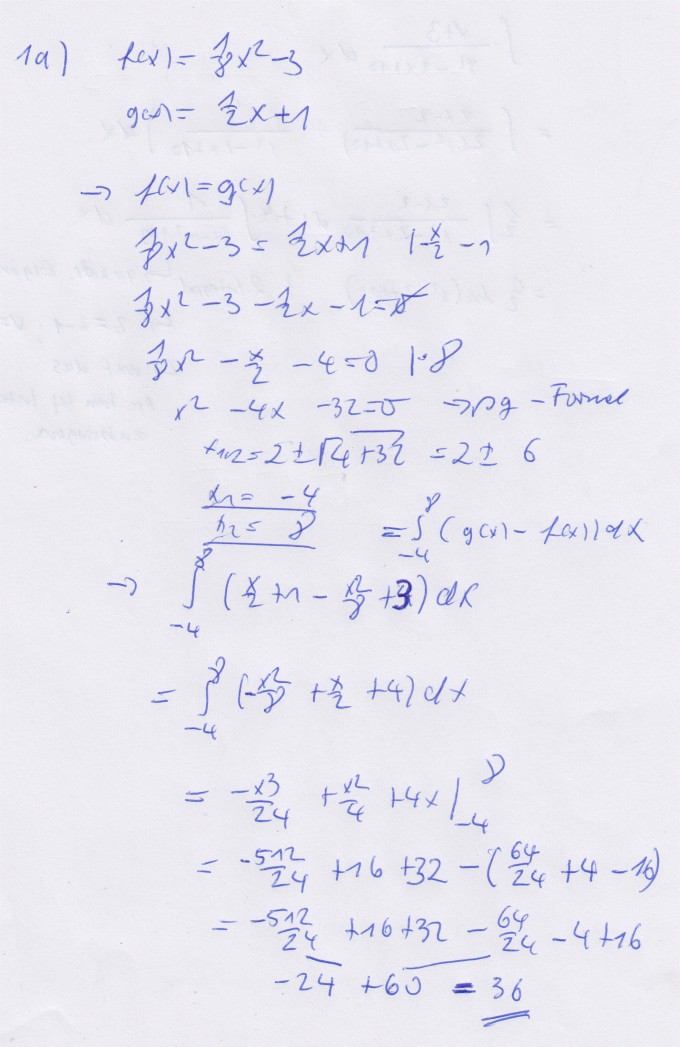 1a) f(x) = 1/8 x² - 3
g(x) = 1/2 x + 1
→ f(x) = g(x)
1/8 x² - 3 = 1/2 x + 1 | - x/2 - 1
1/8 x² - 3 - 1/2 x - 1 = 0
1/8 x² - x/2 - 4 = 0 | · 8
x² - 4x - 32 = 0 → pq - Formel
x₁,₂ = 2 ± √(4 + 32) = 2 ± 6
x₁ = -4
x₂ = 8 = ∫₋₄⁸ (g(x) - f(x)) dx
→ ∫₋₄⁸ (x/2 + 1 - x²/8 + 3) dx
= ∫₋₄⁸ (-x²/8 + x/2 + 4) dx
= -x³/24 + x²/4 + 4x |₋₄⁸
= -512/24 + 16 + 32 - (64/24 + 4 - 16)
= -512/24 + 16 + 32 - 64/24 - 4 + 16
-24 + 60 = 36